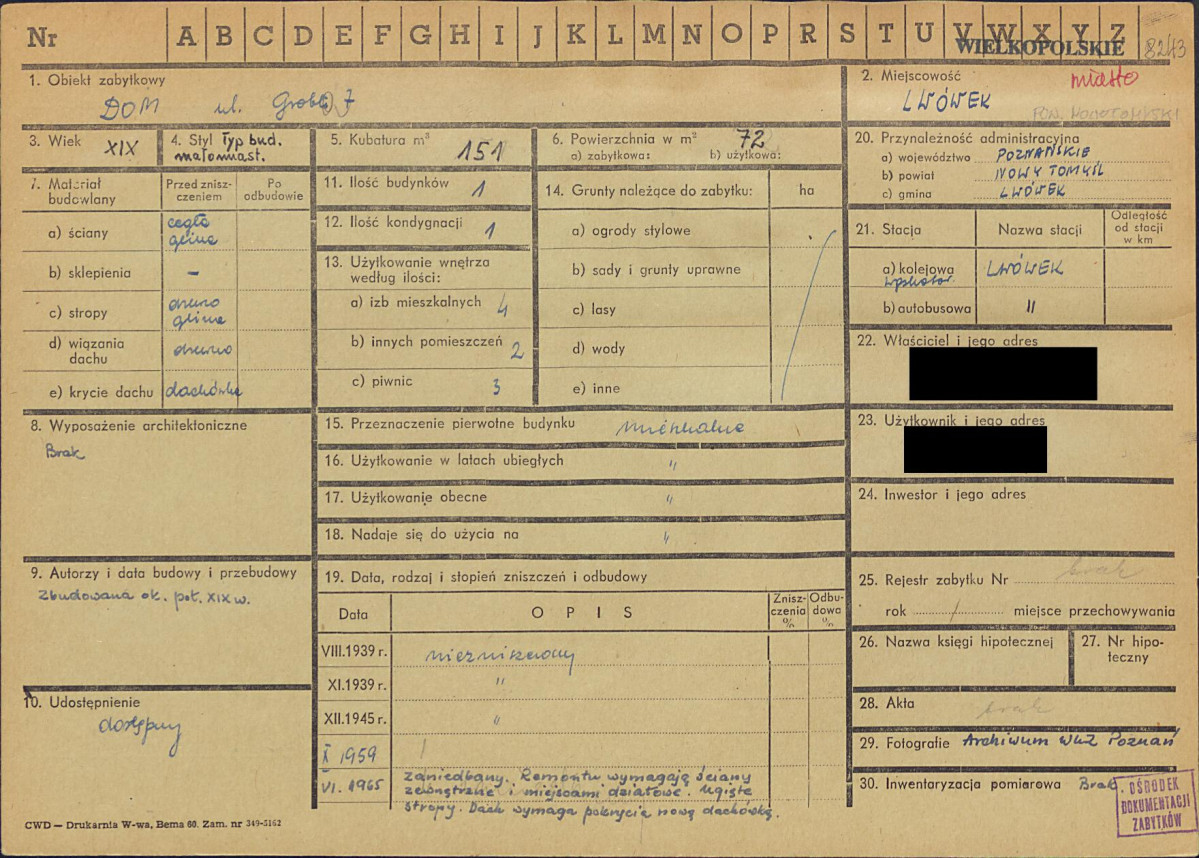 Nr A B C D E F G H I J K L M N O P R S T U V W X Y Z
WIELKOPOLSKIE 8243
1. Obiekt zabytkowy
DOM ul. 7
2. Miejscowość miasto
LWÓWEK
3. Wiek XIX
4. Styl Typ bud.
małomiast.
5. Kubatura m³ 151
6. Powierzchnia w m² 72
a) zabytkowa: b) użytkowa:
20. Przynależność administracyjna
a) województwo POZNAŃSKIE
b) powiat NOWY TOMYŚL
c) gmina LWÓWEK
7. Materiał budowlany
Przed zniszczeniem
Po odbudowie
a) ściany cegła
glina
b) sklepienia –
c) stropy drewno
glina
d) wiązania dachu drewno
e) krycie dachu dachówka
11. Ilość budynków 1
12. Ilość kondygnacji 1
13. Użytkowanie wnętrza
według ilości:
a) izb mieszkalnych 4
b) innych pomieszczeń 2
c) piwnic 3
14. Grunty należące do zabytku: ha
a) ogrody stylowe
b) sady i grunty uprawne
c) lasy
d) wody
e) inne
21. Stacja Nazwa stacji Odległość
od stacji
w km
a) kolejowa LWÓWEK
b) autobusowa "
22. Właściciel i jego adres
23. Użytkownik i jego adres
24. Inwestor i jego adres
8. Wyposażenie architektoniczne
Brak
15. Przeznaczenie pierwotne budynku mieszkalne
16. Użytkowanie w latach ubiegłych "
17. Użytkowanie obecne "
18. Nadaje się do użycia na "
9. Autorzy i data budowy i przebudowy
Zbudowana ok. poł. XIX w.
10. Udostępnienie
dostępny
19. Data, rodzaj i stopień zniszczeń i odbudowy
Data OPIS Zniszczenia % Odbudowa %
VIII.1939 r. niezniszczony
XI.1939 r. "
XII.1945 r. "
X 1959
VI. 1965 zaniedbany. Remontu wymagają ściany
zewnętrzne i miejscami działowe. Ugięte
stropy. Dach wymaga pokrycia nową dachówką.
25. Rejestr zabytku Nr brak
rok / miejsce przechowywania
26. Nazwa księgi hipotecznej
27. Nr hipoteczny
28. Akta brak
29. Fotografie Archiwum WKZ Poznań
30. Inwentaryzacja pomiarowa Brak.
OŚRODEK
DOKUMENTACJI
ZABYTKÓW
CWD — Drukarnia W-wa, Bema 60. Zam. nr 349-5162